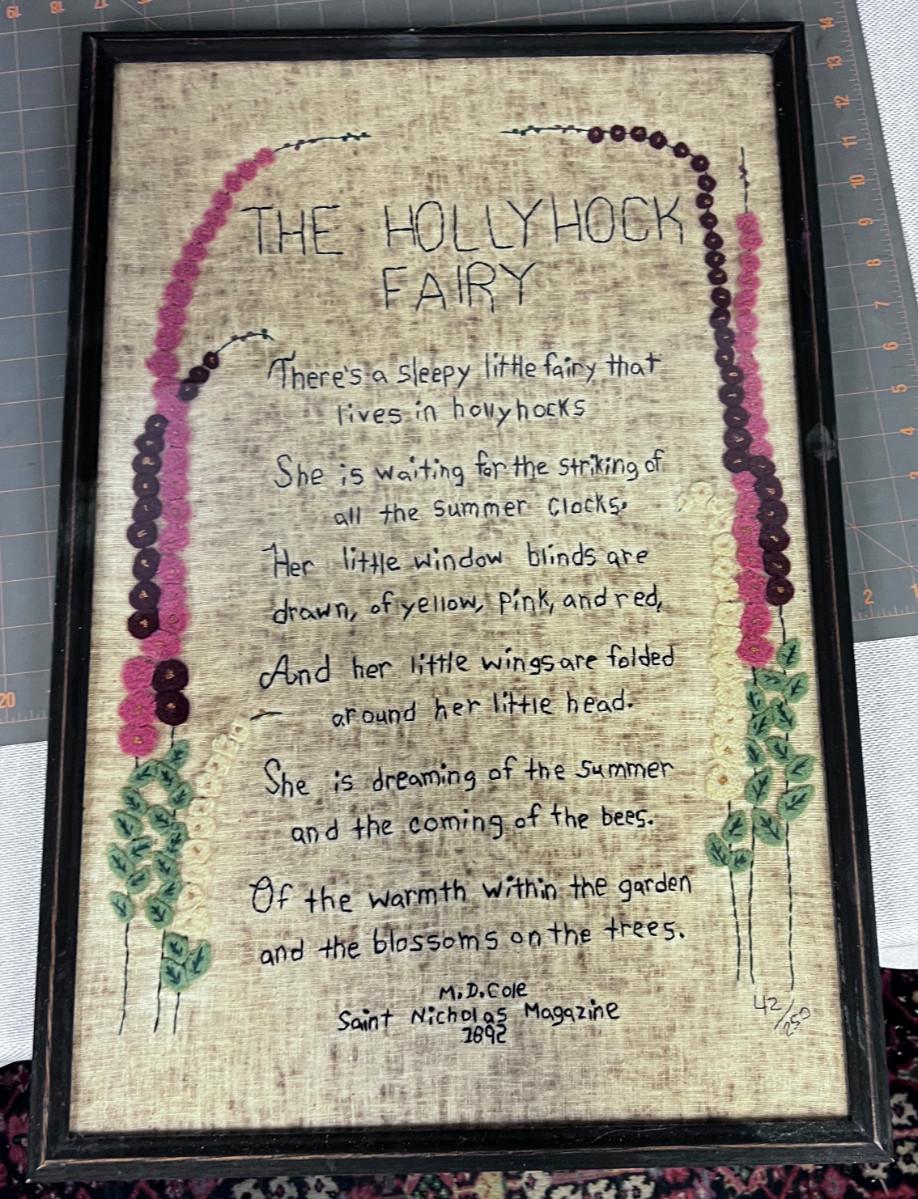 THE HOLLYHOCK
FAIRY
There's a sleepy little fairy that
lives in hollyhocks
She is waiting for the striking of
all the summer clocks.
Her little window blinds are
drawn, of yellow, pink, and red,
And her little wings are folded
around her little head.
She is dreaming of the summer
and the coming of the bees.
Of the warmth within the garden
and the blossoms on the trees.
M.D. Cole
Saint Nicholas Magazine
1892
42/250
14
13
12
11
10
9
8
7
6
5
4
3
2
1
20